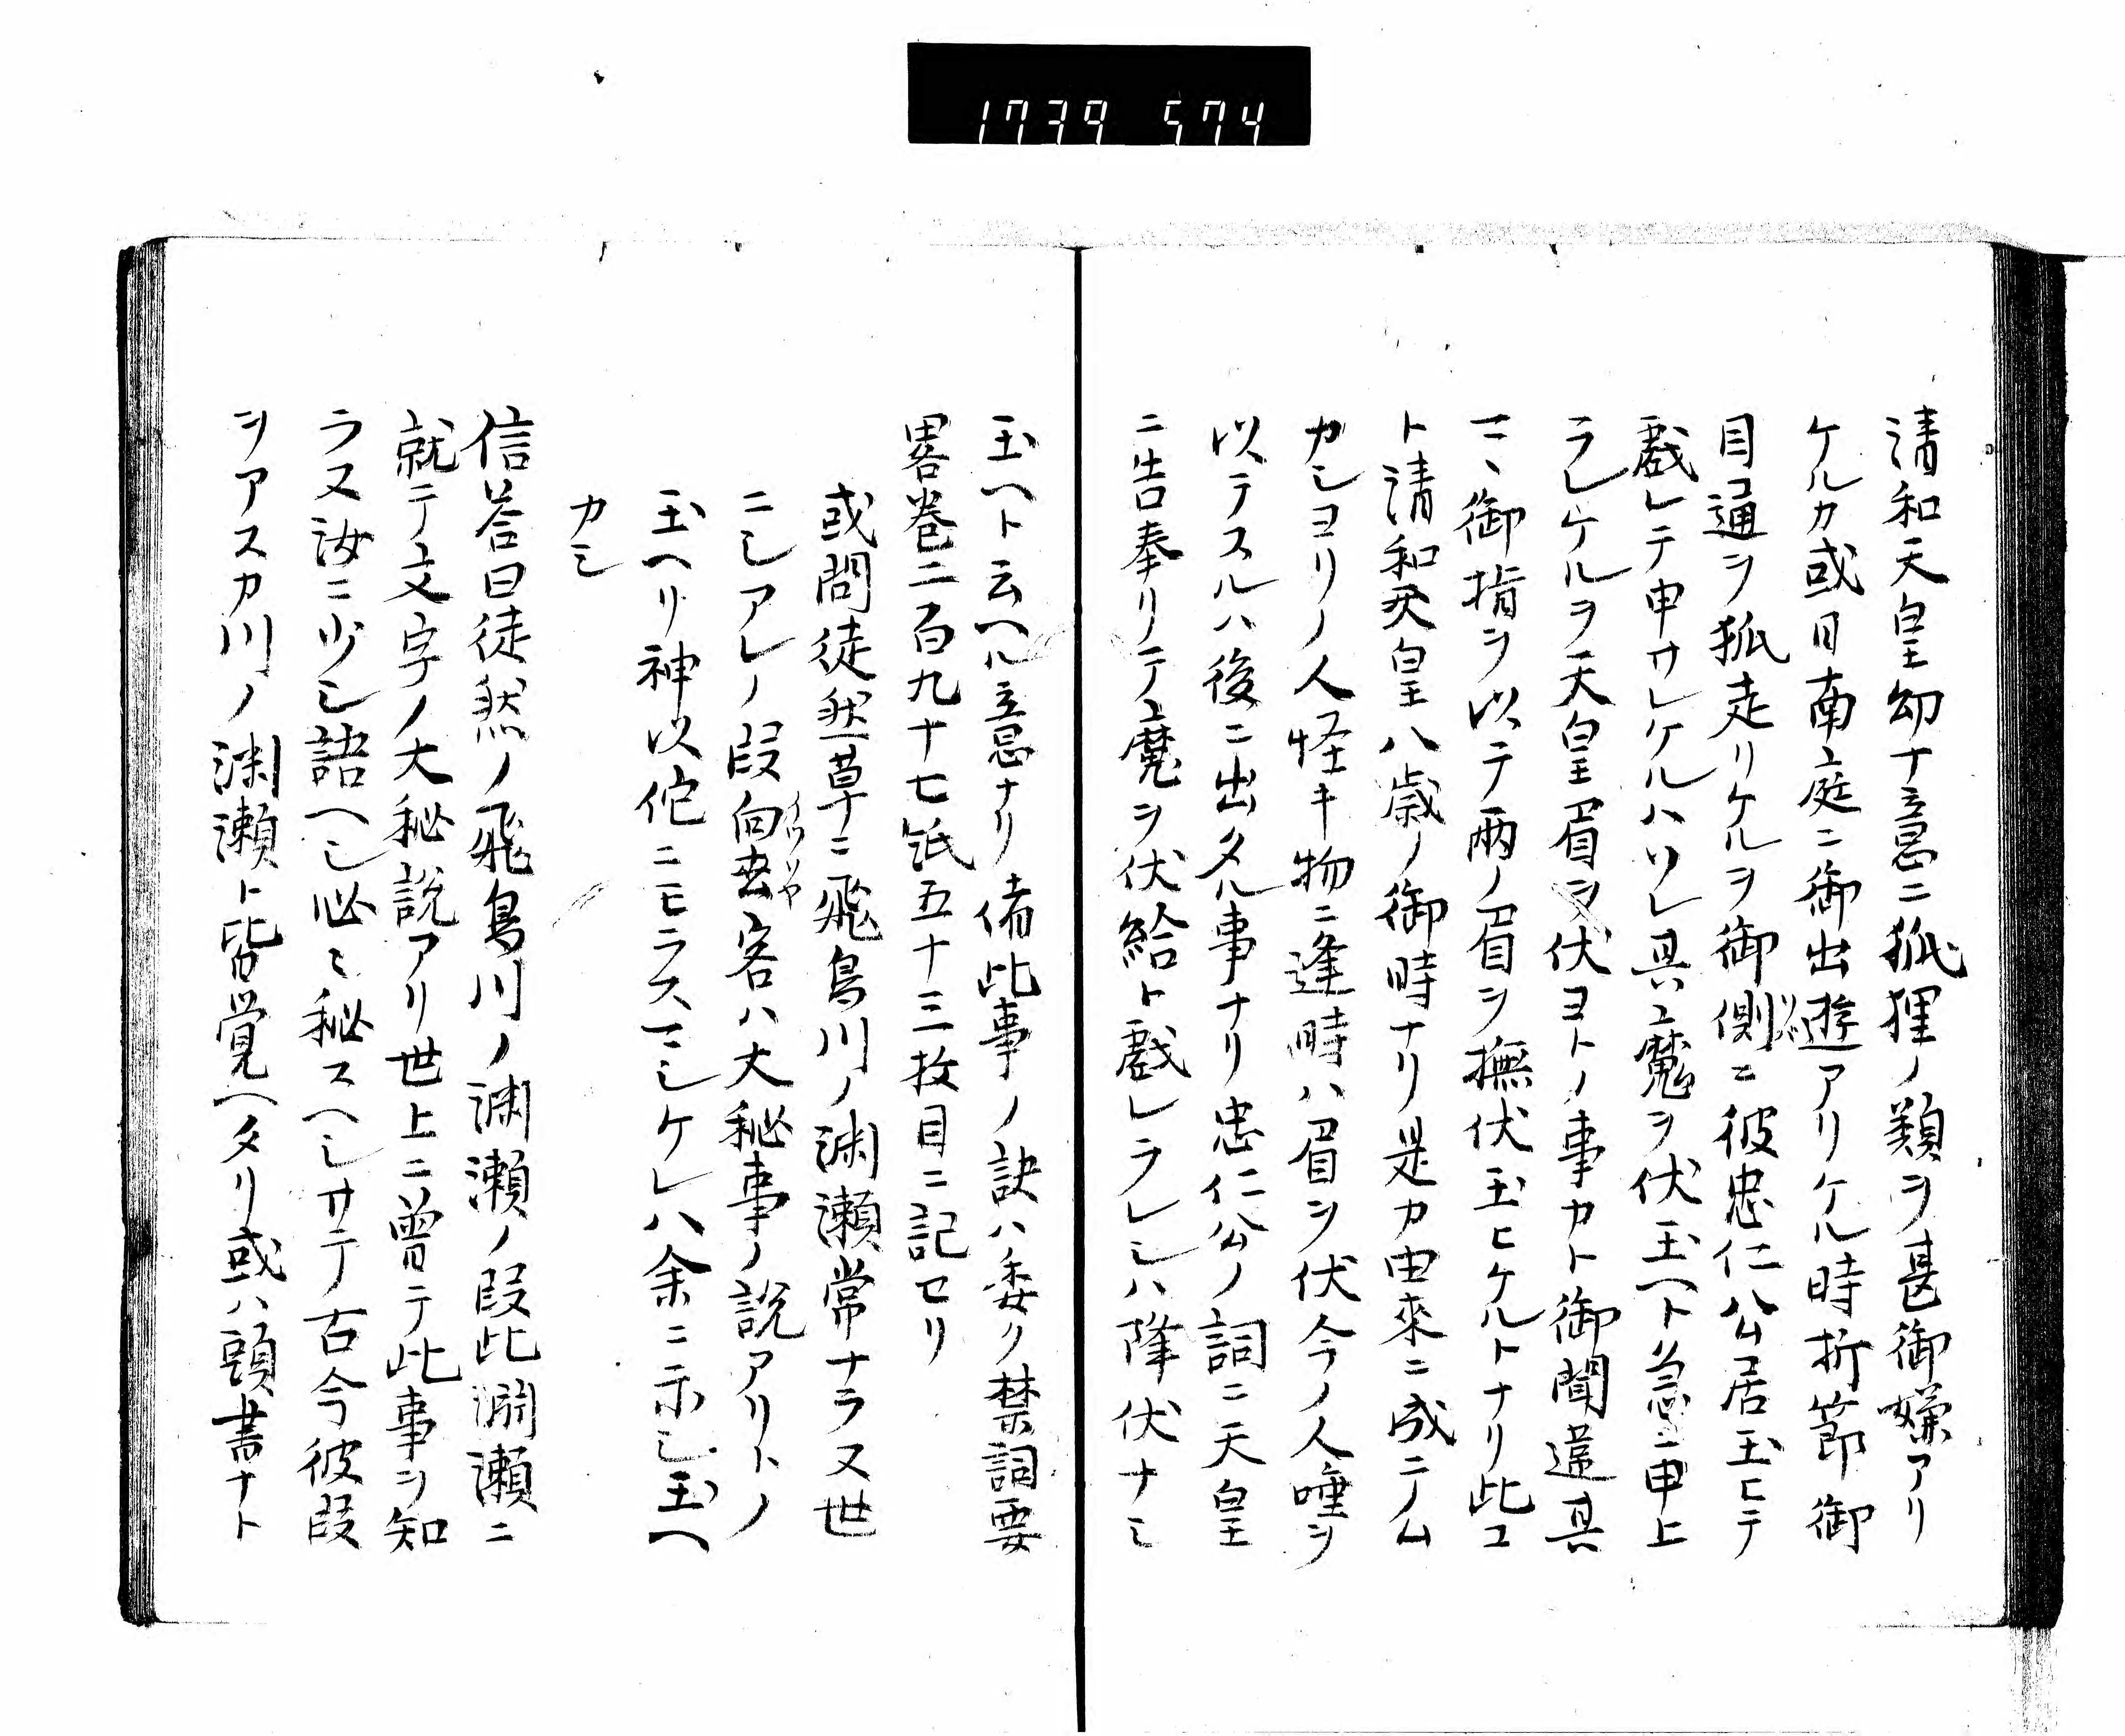 1739 574
清和天皇幼ナ意ニ狐狸ノ類ヲ甚御嫌アリ
ケルカ或日南庭ニ御出遊アリケル時折節御
目通ヲ狐走リケルヲ御側ニ彼忠仁公居玉ヒテ
戯レテ申サレケルハソレ具ニ魔ヲ伏玉ヘト急ニ申上
ラレケルヲ天皇眉ヲ伏ヨトノ事カト御聞違其
マヽ御指ヲ以テ兩ノ眉ヲ撫伏玉ヒケルトナリ此コ
ト清和天皇八歳ノ御時ナリ是カ由來ニ成ニテム
カシヨリノ人怪キ物ニ逢時ハ眉ヲ伏今ノ人唾ヲ
以テスルハ後ニ出タル事ナリ忠仁公ノ詞ニ天皇
ニ告奉リテ魔ヲ伏給ト戯レラレシハ降伏ナシ
玉ヘト云ヘル意ナリ偖此事ノ訣ハ委ク禁詞要
畧巻二百九十七帋五十三枚目ニ記セリ
或問徒然草ニ飛鳥川ノ渕瀬常ナラヌ世
ニシアレノ段向去客ハ大秘事ノ説アリトノ
玉ヘリ神以佗ニモラスマシケレハ余ニ示シ玉ヘ
カシ
信荅曰徒然ノ飛鳥川ノ渕瀬ノ段此渕瀬ニ
就テ文字ノ大秘説アリ世上ニ曽テ此事ヲ知
ラヌ汝ニ少シ語ヘシ必〻秘スヘシサテ古今彼段
ヲアスカ川ノ渕瀬ト皆覚ヘタリ或ハ頭書ナト